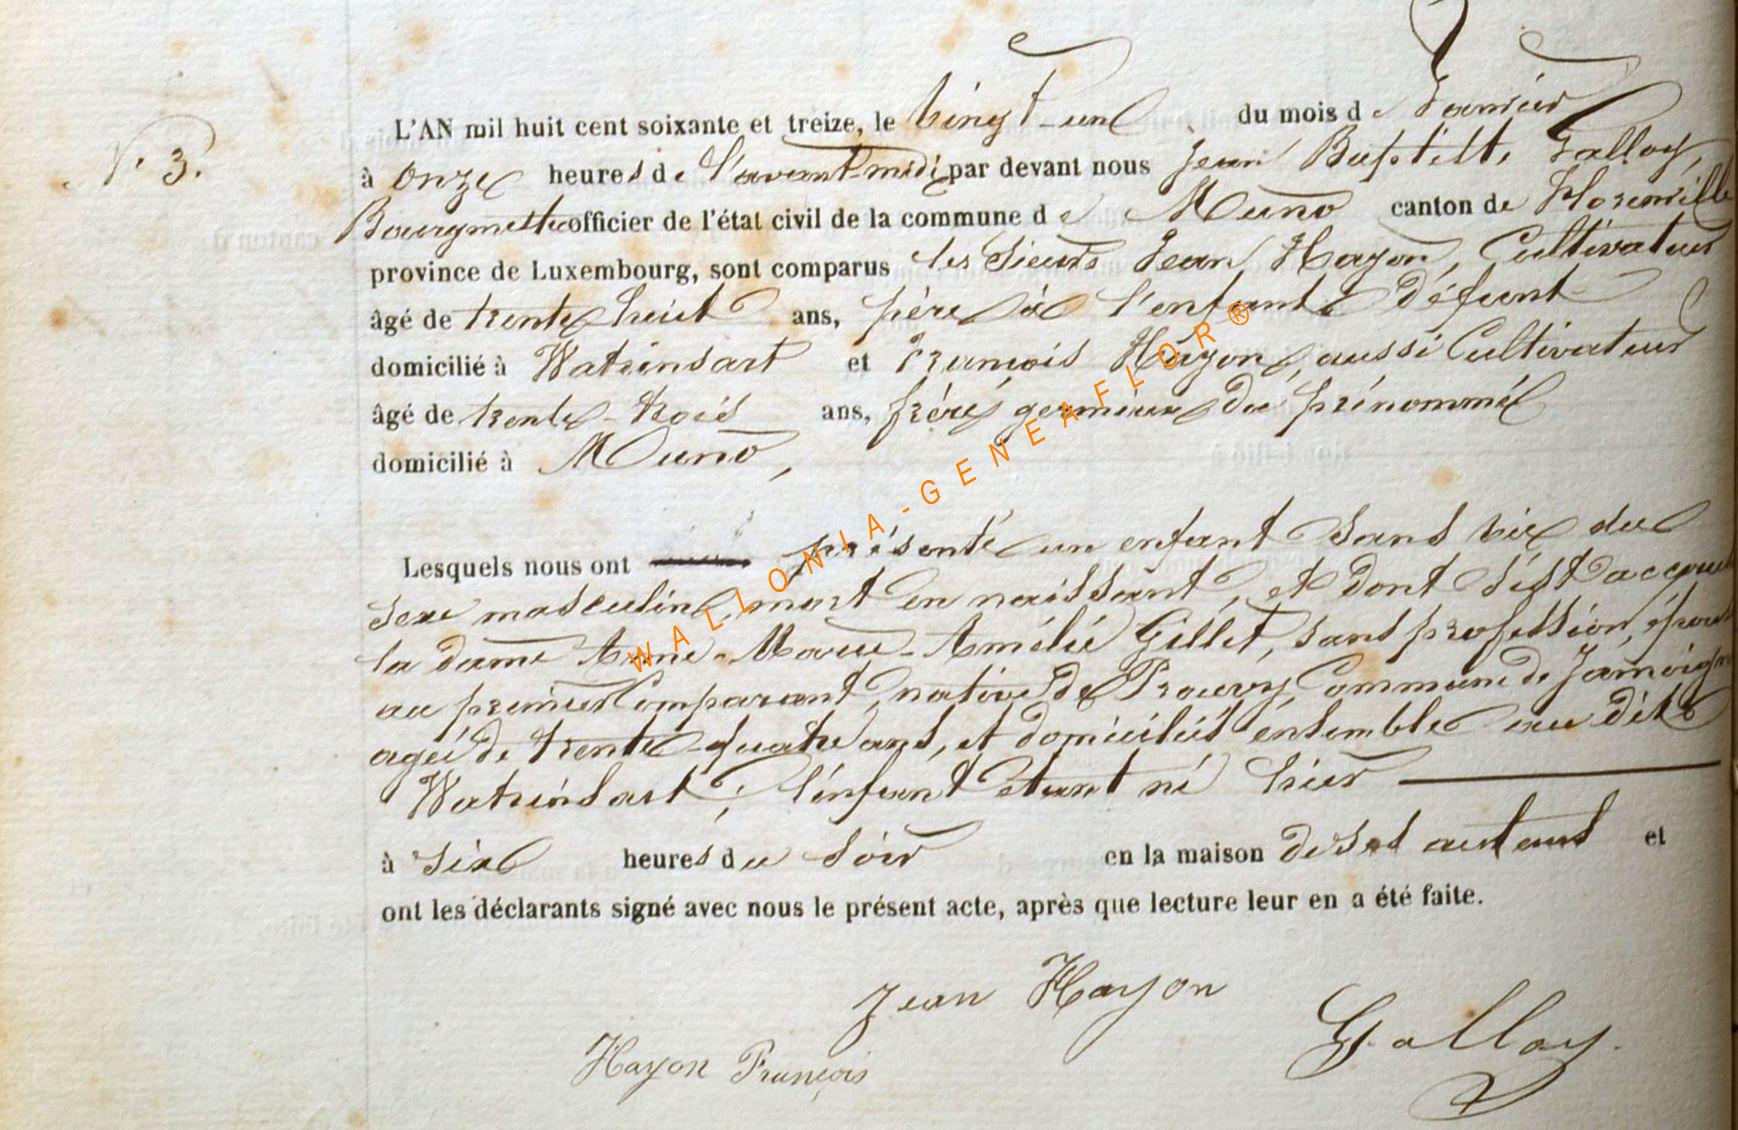 N° 3.
L'AN mil huit cent soixante et treize, le vingt-un du mois de Janvier
à onze heures de l'avant-midi par devant nous Jean Baptiste Galloy,
Bourgmestre officier de l'état civil de la commune de Muno canton de Florenville
province de Luxembourg, sont comparus les Sieurs Jean Hayon, Cultivateur
âgé de trente huit ans, père à l'enfant défunt
domicilié à Watrinsart et François Hayon, aussi Cultivateur
âgé de trente-trois ans, frère germain du prénommé
domicilié à Muno,
Lesquels nous ont présenté un enfant sans vie du
sexe masculin, mort en naissant, et dont s'est accouchée
la dame Anne-Marie-Amélie Gillet, sans profession, épouse
au premier Comparant, native de Prouvy, Commune de Jamoigne
agée de trente-quatre ans, et domiciliés ensemble au dit
Watrinsart ; l'enfant étant né hier
à six heures du soir en la maison de ses auteurs et
ont les déclarants signé avec nous le présent acte, après que lecture leur en a été faite.
Jean Hayon
Hayon François
Galloy
WALLONIA-GENEAFLOR®